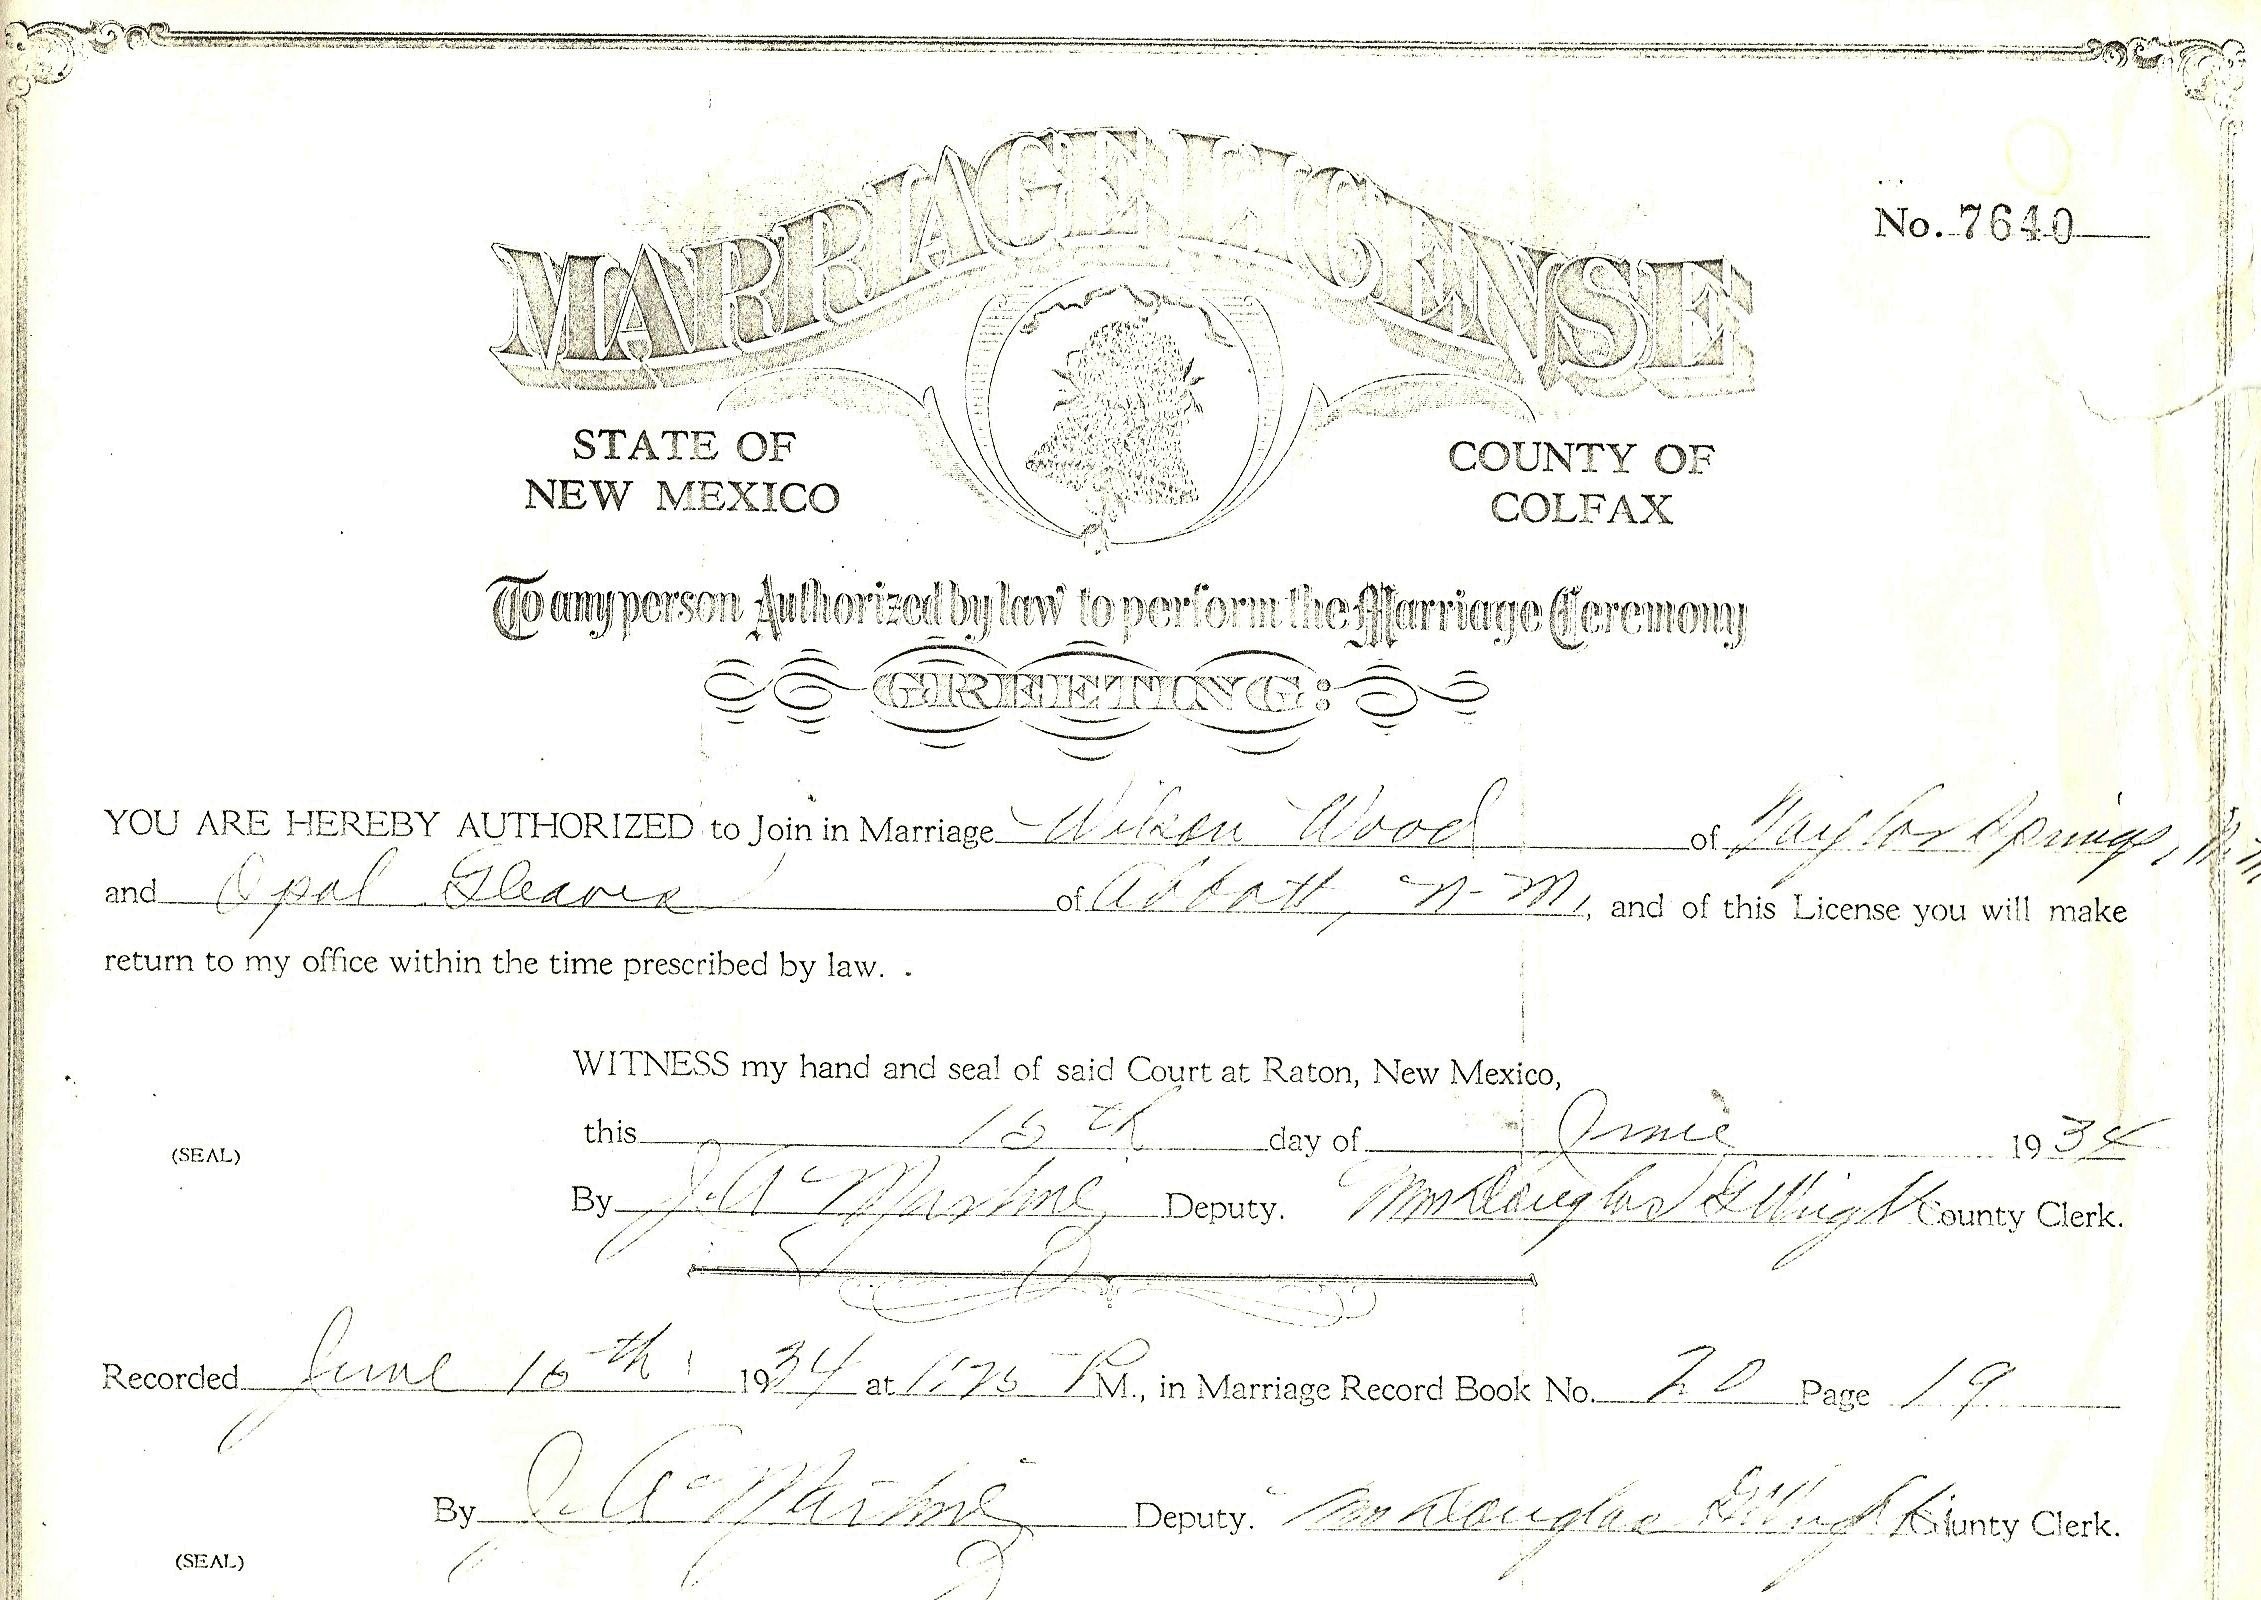 MARRIAGE LICENSE
No. 7640
STATE OF
NEW MEXICO
COUNTY OF
COLFAX
To any person Authorized by law to perform the Marriage Ceremony
GREETING:
YOU ARE HEREBY AUTHORIZED to Join in Marriage Wilson Wood of Taylor Springs, N.M.
and Opal Gleaves of Abbott, N-M., and of this License you will make
return to my office within the time prescribed by law. .
WITNESS my hand and seal of said Court at Raton, New Mexico,
this 15th day of June 1934
(SEAL)
By J. A. Martinez Deputy. Mrs Douglas G Wright County Clerk.
Recorded June 15th 1934 at 1:25 P M., in Marriage Record Book No. 20 Page 19
By J. A. Martinez Deputy. Mrs Douglas G Wright County Clerk.
(SEAL)